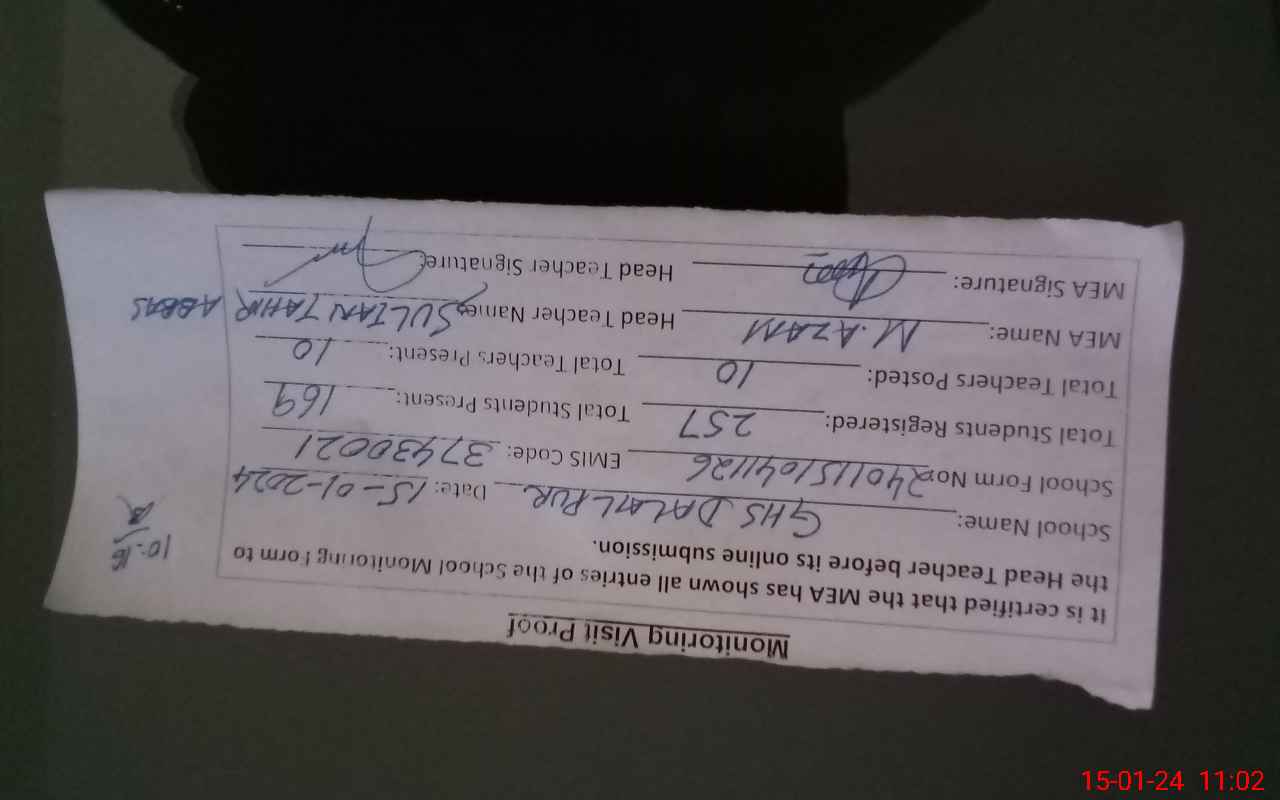 Monitoring Visit Proof
It is certified that the MEA has shown all entries of the School Monitoring Form to
the Head Teacher before its online submission.
School Name: GHS DALAILPUR Date: 15-01-2024
School Form No: 240115104126 EMIS Code: 37430021
Total Students Registered: 257 Total Students Present: 169
Total Teachers Posted: 10 Total Teachers Present: 10
MEA Name: M. AZAM Head Teacher Name: SULTAN TAHIR ABBAS
MEA Signature: Head Teacher Signature:
15-01-24 11:02